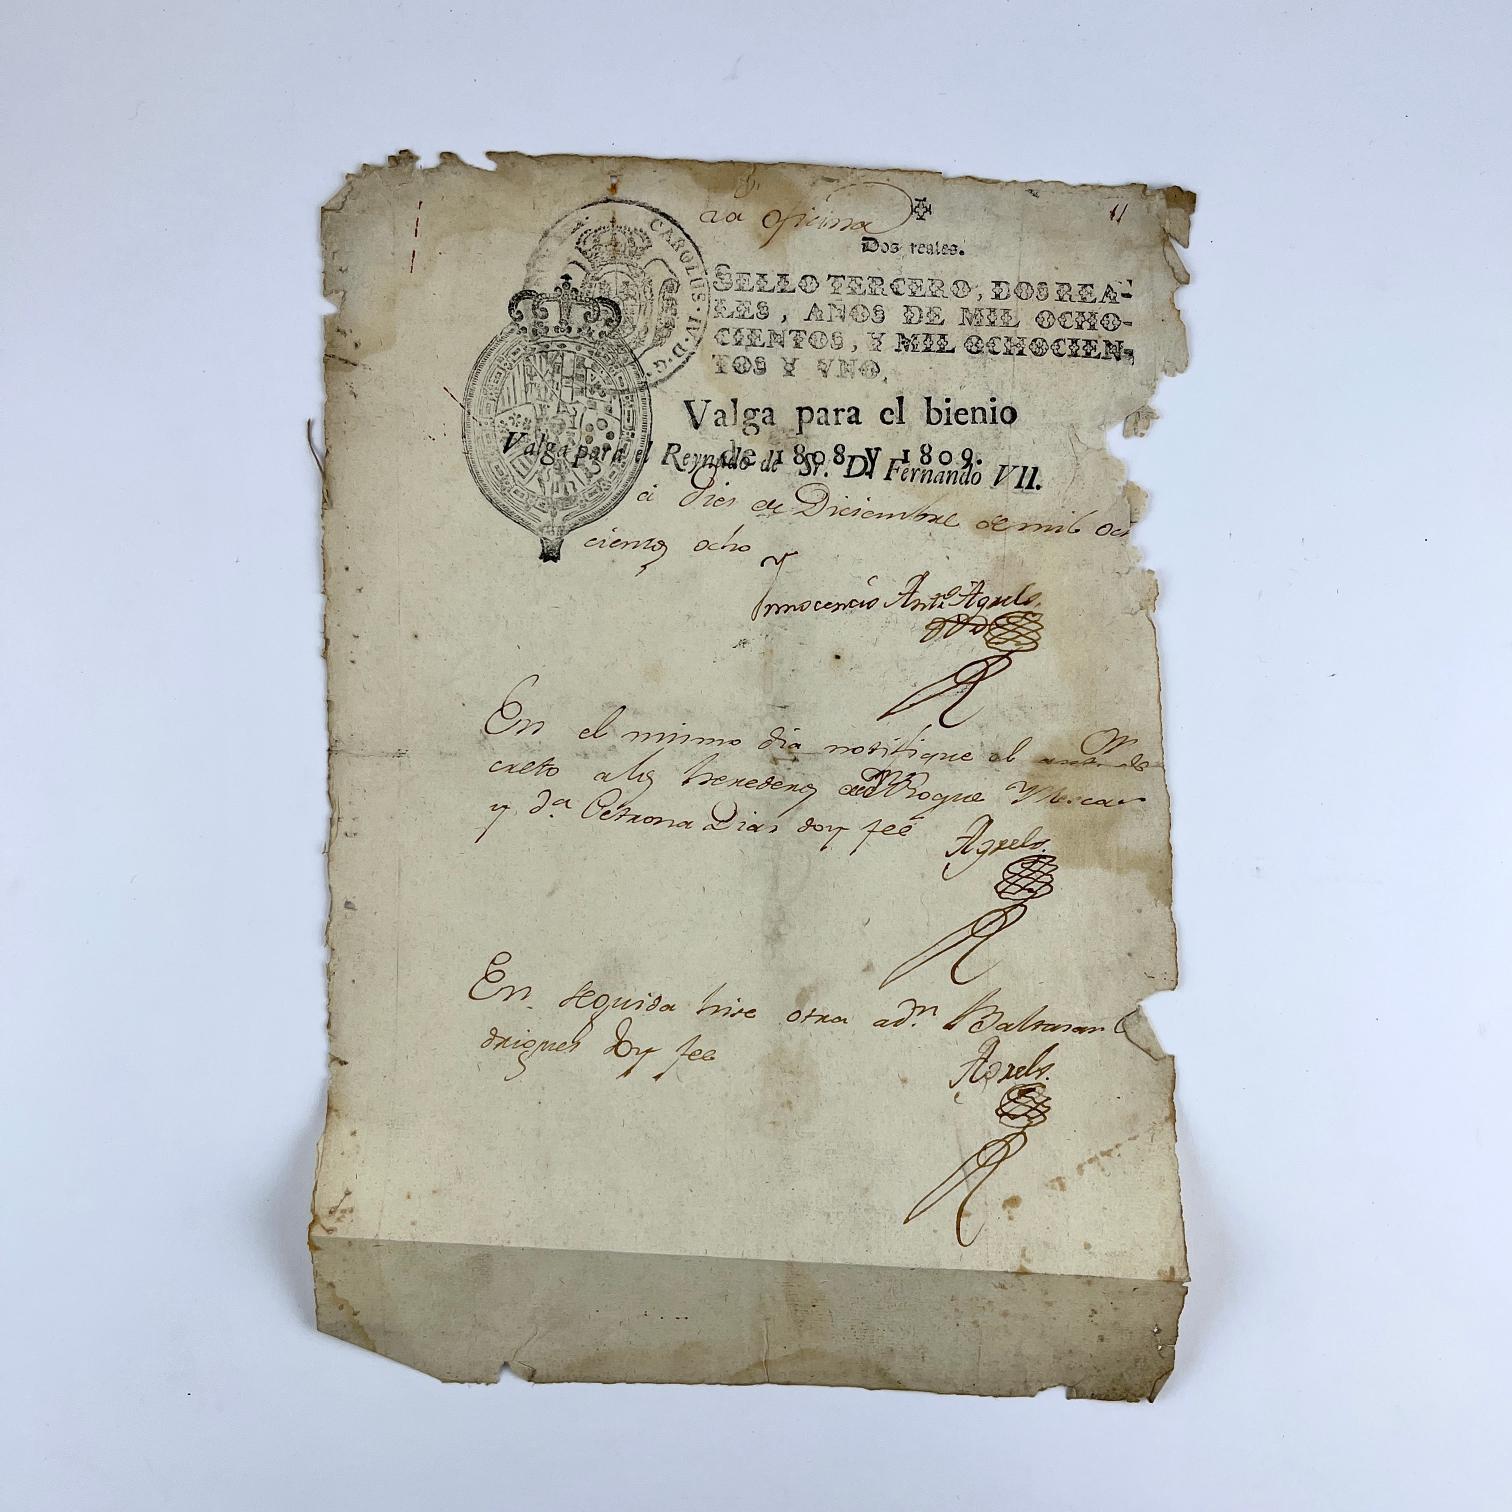 2a oficina
11
Dos reales.
CAROLUS·IV·D·G·
SELLO TERCERO, DOS REA-
LES, AÑOS DE MIL OCHO-
CIENTOS, Y MIL OCHOCIEN-
TOS Y VNO.
Valga para el bienio
de 1808 y 1809.
Valga para el Reynado de Sr. D. Fernando VII.
a dies de Diciembre de mil och
cientos ocho
Innocencio Anto. Agrelo.
En el mismo dia notifique el ante de
creto a los herederos de Dn Roque
y Da Petrona Dias doy feé
Agrelo.
En seguida hise otra a Dn. Baltasar
drigues doy feé
Agrelo.